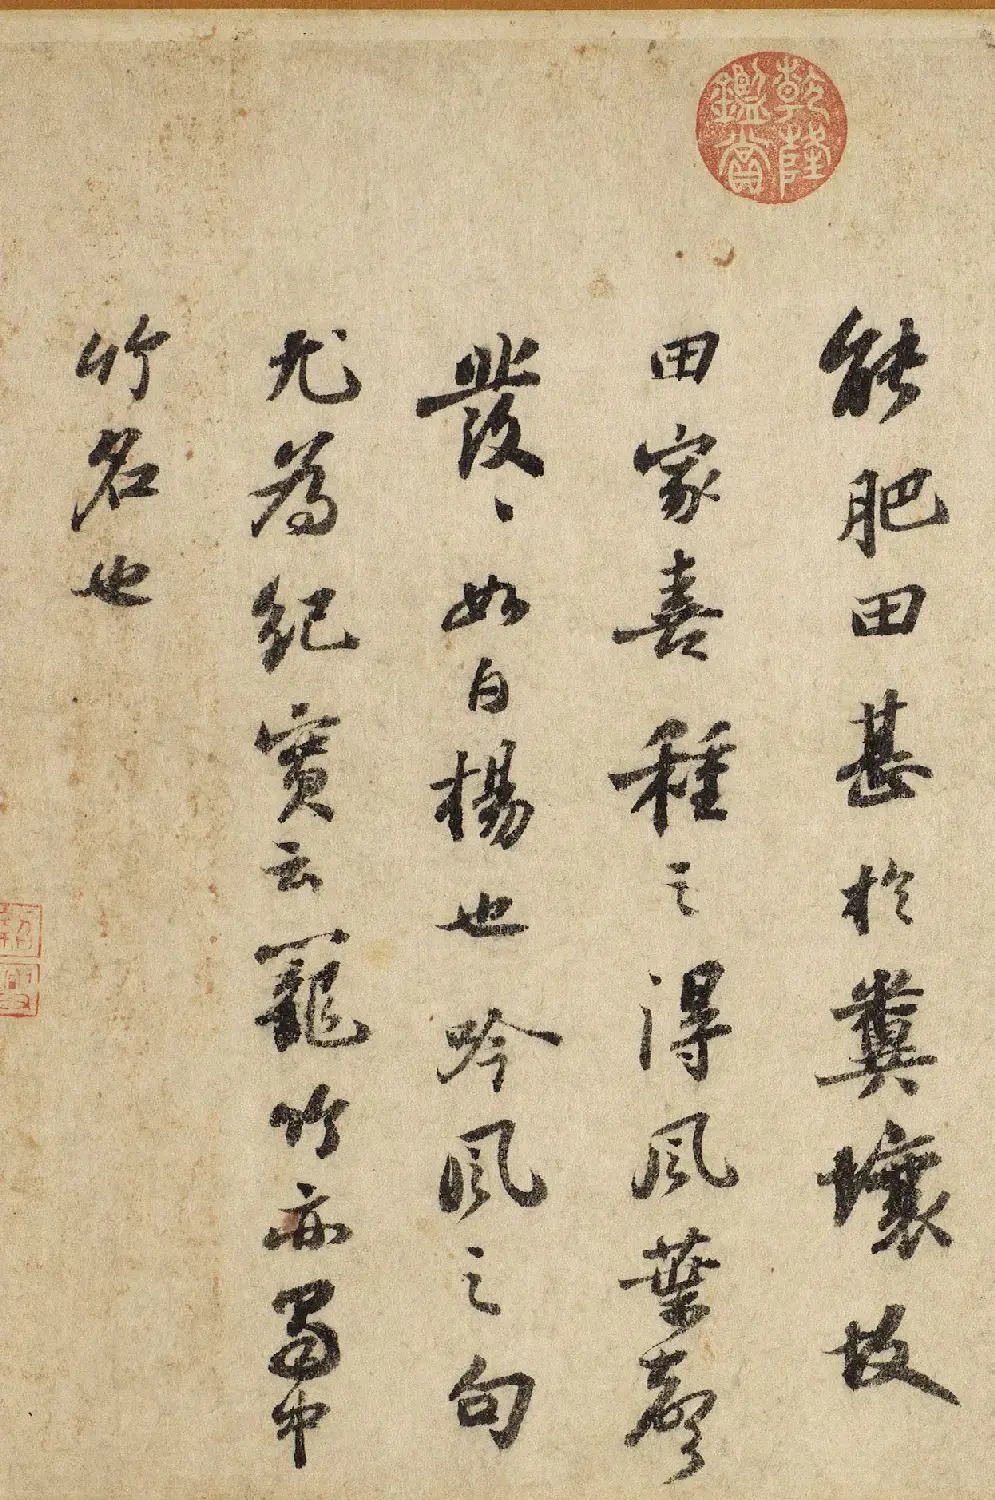 乾隆鑑賞
能肥田甚於糞壤故
田家喜種之得風葉聲
發〻如白楊也吟風之句
尤為紀實云籠竹亦蜀中
竹名也